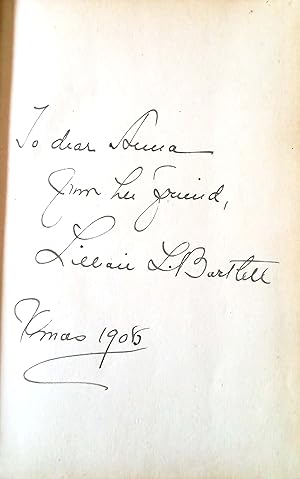 To dear Anna
from her friend,
Lillian L. Bartlett
Xmas 1906